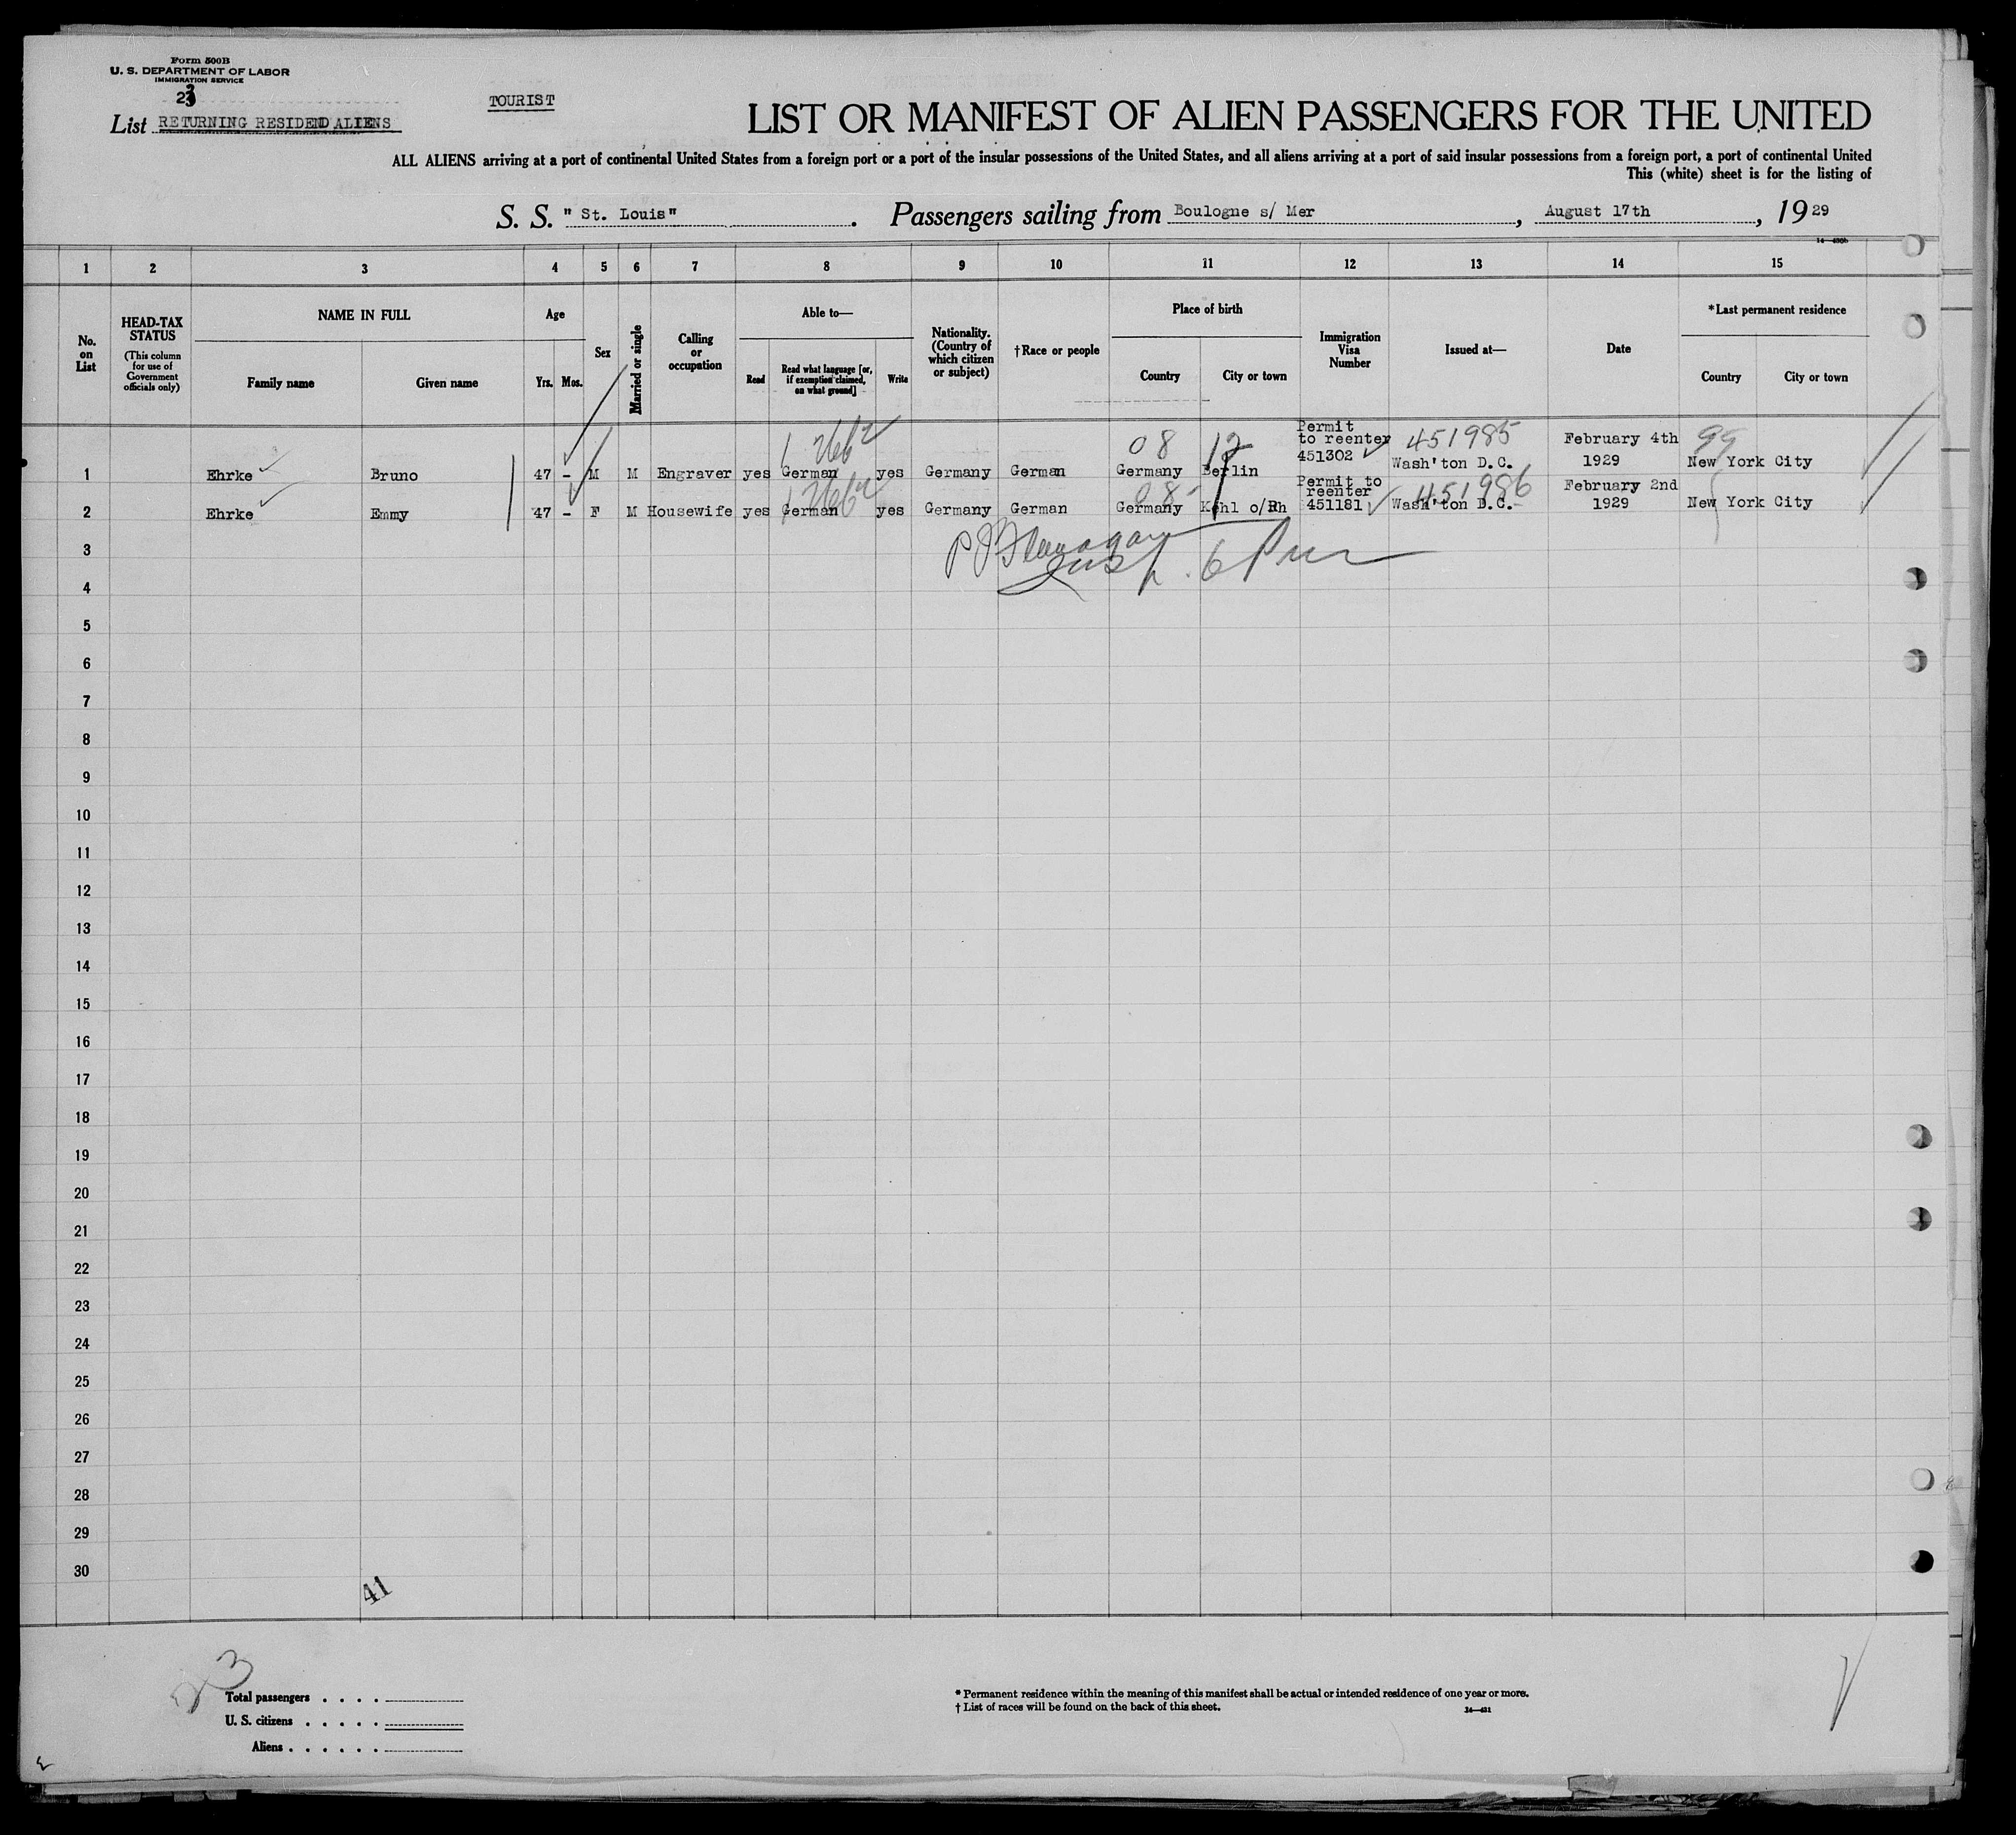 Form 500B
U. S. DEPARTMENT OF LABOR
IMMIGRATION SERVICE
23
TOURIST
List RETURNING RESIDEND ALIENS
LIST OR MANIFEST OF ALIEN PASSENGERS FOR THE UNITED
ALL ALIENS arriving at a port of continental United States from a foreign port or a port of the insular possessions of the United States, and all aliens arriving at a port of said insular possessions from a foreign port, a port of continental United
This (white) sheet is for the listing of
S. S. "St. Louis". Passengers sailing from Boulogne s/ Mer, August 17th, 1929
1 2 3 4 5 6 7 8 9 10 11 12 13 14 15
No. on List
HEAD-TAX STATUS
(This column for use of Government officials only)
NAME IN FULL
Family name Given name
Age
Yrs. Mos.
Sex
Married or single
Calling or occupation
Able to—
Read
Read what language [or, if exemption claimed, on what ground]
Write
Nationality. (Country of which citizen or subject)
†Race or people
Place of birth
Country City or town
Immigration Visa Number
Issued at—
Date
*Last permanent residence
Country City or town
1 Ehrke Bruno 47 - M M Engraver yes German yes Germany German 08 Germany 12 Berlin Permit to reenter 451302 451985 Wash'ton D.C. February 4th 1929 99 New York City
2 Ehrke Emmy 47 - F M Housewife yes German yes Germany German 08 Germany Kehl o/Rh Permit to reenter 451181 451986 Wash'ton D.C. February 2nd 1929 New York City
3
4
5
6
7
8
9
10
11
12
13
14
15
16
17
18
19
20
21
22
23
24
25
26
27
28
29
30
41
23
Total passengers . . . .
U. S. citizens . . . . .
Aliens . . . . . .
* Permanent residence within the meaning of this manifest shall be actual or intended residence of one year or more.
† List of races will be found on the back of this sheet.